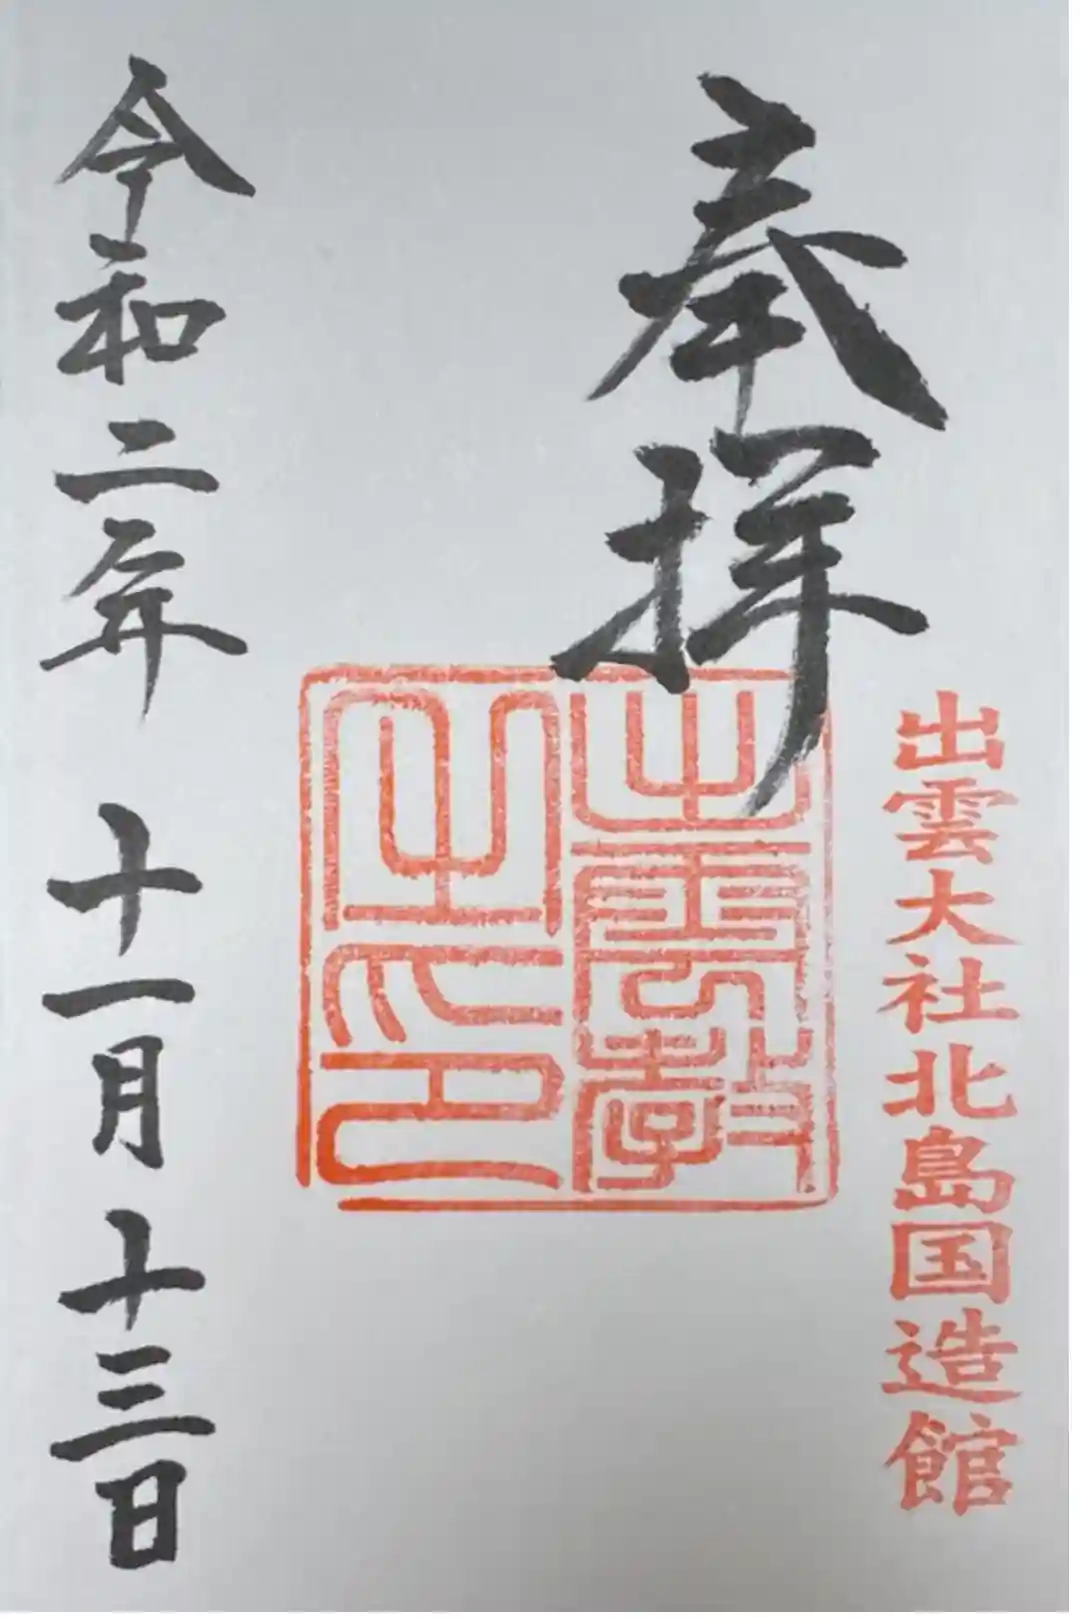 奉拝
出雲大社北島国造館
出雲教
之印
令和二年 十一月 十三日